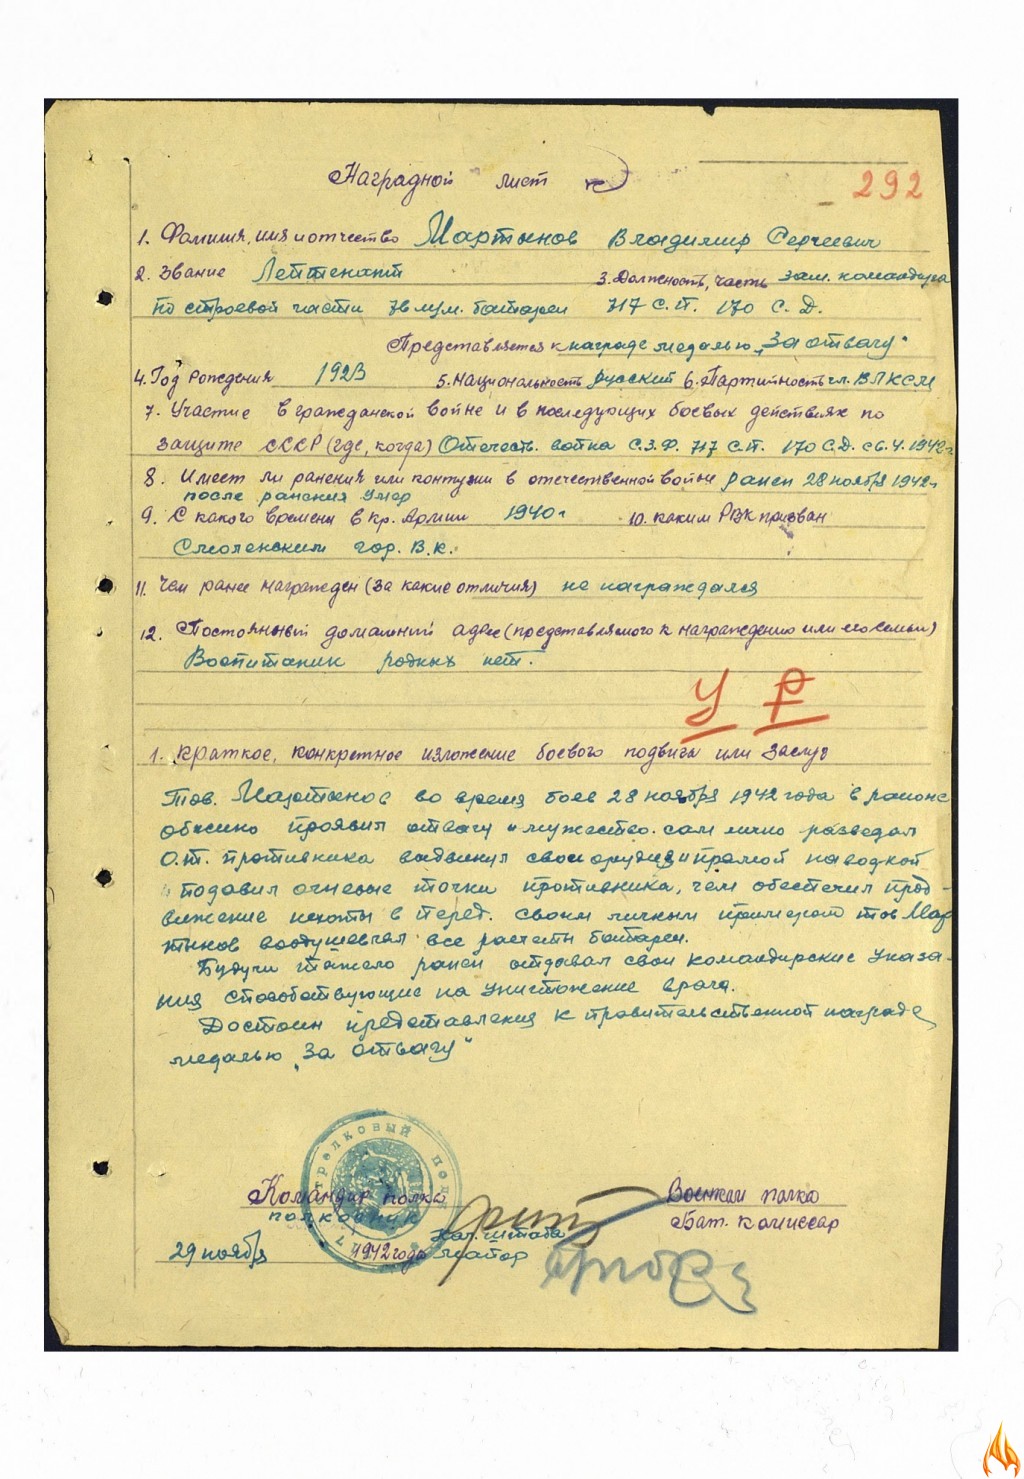 Наградной лист
292
1. Фамилия, имя и отчество Мартынов Владимир Сергеевич
2. Звание Лейтенант 3. Должность, часть зам. командира
по строевой части 76 м/м. батареи 717 С.П. 170 С.Д.
Представляется к награде медалью „За отвагу"
4. Год рождения 1923 5. Национальность русский 6. Партийность чл. ВЛКСМ
7. Участие в гражданской войне и в последующих боевых действиях по
защите СССР (где, когда) Отечеств. война С.З.Ф. 717 С.П. 170 С.Д. с 6.4.1942г.
8. Имеет ли ранения или контузии в отечественной войне ранен 28 ноября 1942г
после ранения умер
9. С какого времени в Кр. Армии 1940г 10. каким РВК призван
Смоленским гор. В.К.
11. Чем ранее награжден (за какие отличия) не награждался
12. Постоянный домашний адрес (представляемого к награждению или его семьи)
Воспитаник родных нет.
У Р
1. Краткое, конкретное изложение боевого подвига или заслуг
Тов. Мартынов во время боев 28 ноября 1942 года в районе
проявил отвагу и мужество. сам лично разведал
О.т. противника выдвинул свои орудия и прямой наводкой
подавил огневые точки противника, чем обеспечил прод-
вижение пехоты в перед. своим личным примером тов Мар
тынов воодушевлял все расчеты батареи.
Будучи тяжело ранен отдавал свои командирские указа-
ния способствующие на уничтожение врага.
Достоин представления к правительственной награде
медалью „За отвагу"
стрелковый полк
Командир полка Военком полка
полковник Бат. комиссар
Нач. штаба
29 ноября 1942 года майор